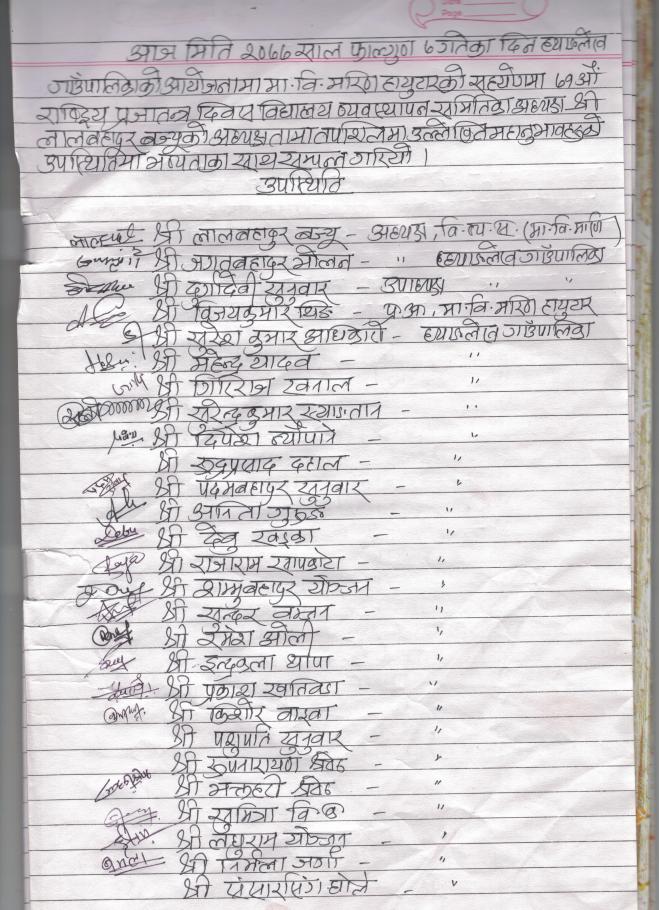 आज मिति २०७७ साल फाल्गुण ७ गतेका दिन हयाङलेख
गाउँपालिकाको आयोजनामा मा. वि. मरिण हायुटारको सहयोगमा ७१ औं
राष्ट्रिय प्रजातन्त्र दिवस विद्यालय व्यवस्थापन समितिका अध्यक्ष श्री
लालबहादुर बज्यूको अध्यक्षतामा तपशिलमा उल्लेखित महानुभावहरुको
उपस्थितिमा भव्यताका साथ सम्पन्न गरियो ।
उपस्थिति
श्री लालबहादुर बज्यू - अध्यक्ष, वि. व्य. स. (मा. वि. मरिण)
श्री जगतबहादुर मोलन - " हयाङलेख गाउँपालिका
श्री दुर्गादेवी सुनुवार - उपाध्यक्ष " "
श्री विजयकुमार थिङ - प्र. अ., मा. वि. मरिण हायुटार
श्री सुरेश कुमार अधिकारी - हयाङलेख गाउँपालिका
श्री महेन्द्र यादव - "
श्री गिरिराज खनाल - "
श्री सुरेन्द्रकुमार स्याङतान - "
श्री दिपेश न्यौपाने - "
श्री रुद्रप्रसाद दहाल - "
श्री पदमबहादुर सुनुवार - "
श्री अनिता गुरुङ - "
श्री देबु खड्का - "
श्री राजाराम सापकोटा - "
श्री शम्भुबहादुर योञ्जन - "
श्री सुन्दर बम्जन - "
श्री रमेश ओली - "
श्री इन्द्रकला थापा - "
श्री प्रकाश खतिवडा - "
श्री किशोर वाइबा - "
श्री पशुपति सुनुवार - "
श्री रुपनारायण श्रेष्ठ - "
श्री मलहरी श्रेष्ठ - "
श्री सुमित्रा वि.क - "
श्री लघुराम योञ्जन - "
श्री निर्मला जर्गा - "
श्री संसारसिंग घोले - "